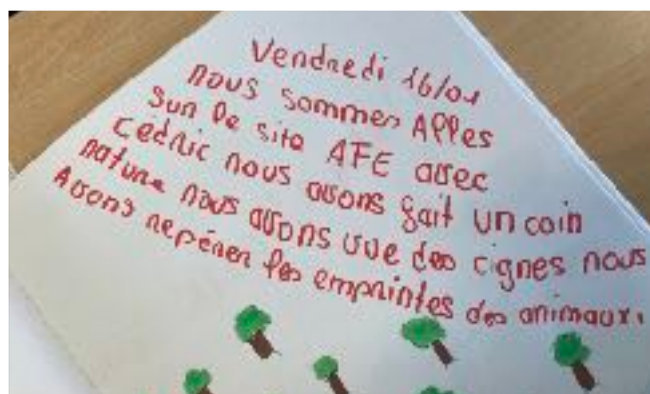 Vendredi 16/01
nous sommes Allés
sur le site AFE avec
Cédric nous avons fait un coin
nature nous avons vue des cignes nous
Avons repérer les empruintes des animaux.